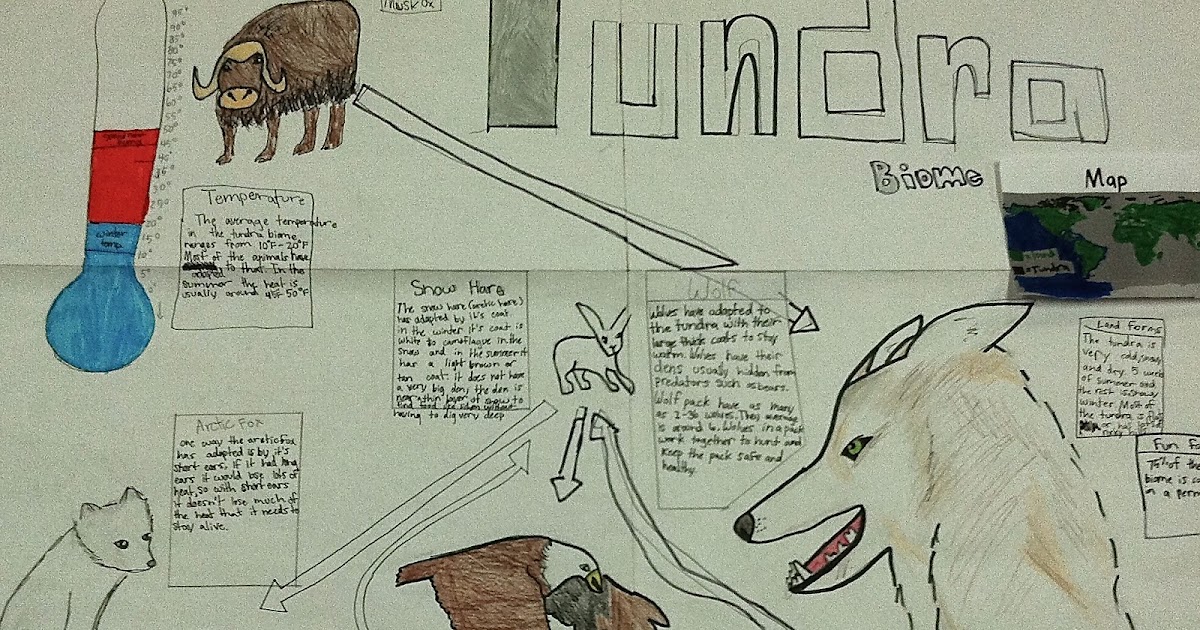 Musk Ox
Tundra
Biome
Map
95°
90°
85°
80°
75°
70°
65°
60°
winter
temp.
20°
15°
10°
5°
0°
Temperature
The average temperature
in the tundra biome
ranges from 10°F-20°F
Most of the animals have
adapted to that. In the
summer the heat is
usually around 45°F 50°F
Snow Hare
The snow hare (arctic hare)
has adapted by it's coat
in the winter it's coat is
white to camoflague in the
snow and in the summer it
has a light brown or
tan coat. it does not have
a very big den, the den is
near thin layer of snow to
find food like lichen without
having to dig very deep
Wolf
Wolves have adapted to
the tundra with their
large thick coats to stay
warm. Wolves have their
dens usually hidden from
predators such as bears.
Wolf pack have as many
as 2-36 wolves. They average
is around 6. Wolves in a pack
work together to hunt and
keep the pack safe and
healthy.
Arctic Fox
one way the arctic fox
has adapted is by it's
short ears, if it had long
ears it would lose lots of
heat, so with short ears
it doesn't lose much of
the heat that it needs to
stay alive.
Tundra
Land forms
The tundra is
very cold, snowy
and dry. 5 weeks
of summer and
the rest is snowy
winter. Most of
the tundra is flat
or has
rocky
Fun Fa
75% of the
biome is co
on a perm